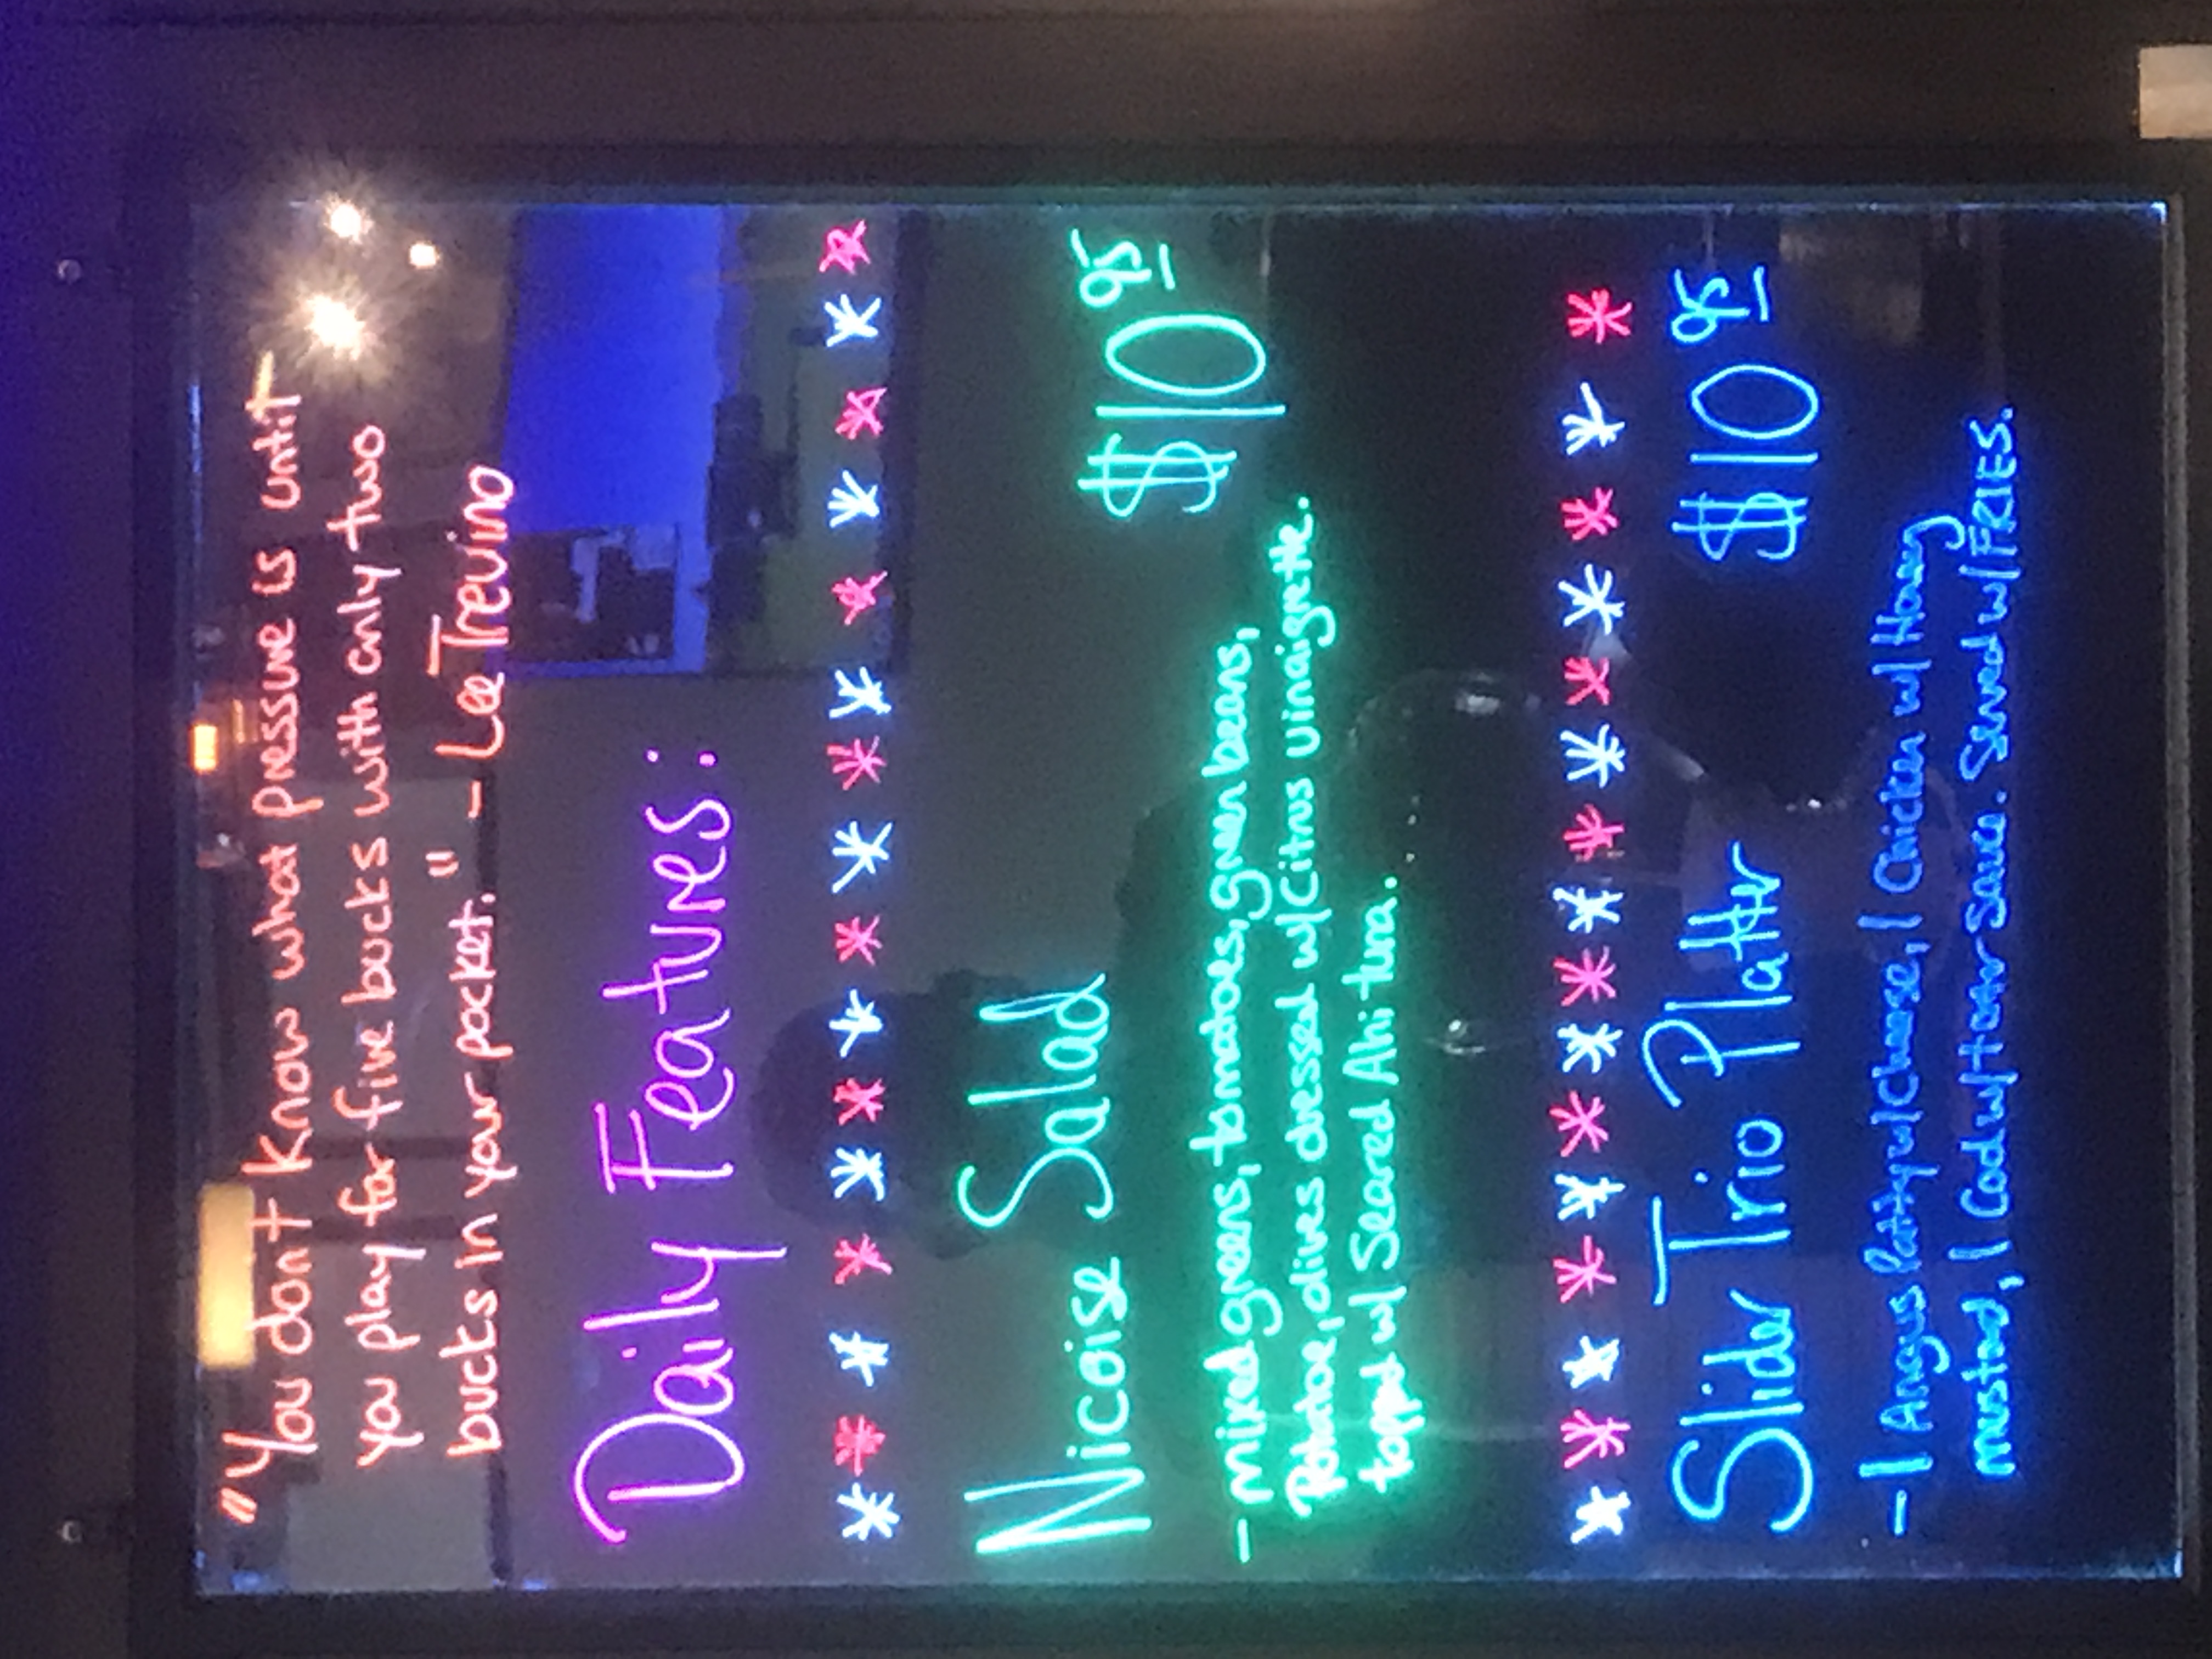 "You don't know what pressure is until
you play for five bucks with only two
bucks in your pocket." - Lee Trevino
Daily Features:
* * * * * * * * * * * * * * * *
Nicoise Salad $10 95
- mixed greens, tomatoes, green beans,
Potatoe, olives dressed w/ Citrus vinaigrette.
topped w/ Seared Ahi tuna.
* * * * * * * * * * * * * * * *
Slider Trio Platter $10 95
- 1 Angus Patty w/ cheese, 1 Chicken w/ Honey
mustard, 1 Cod w/ tartar sauce. Served w/ FRIES.